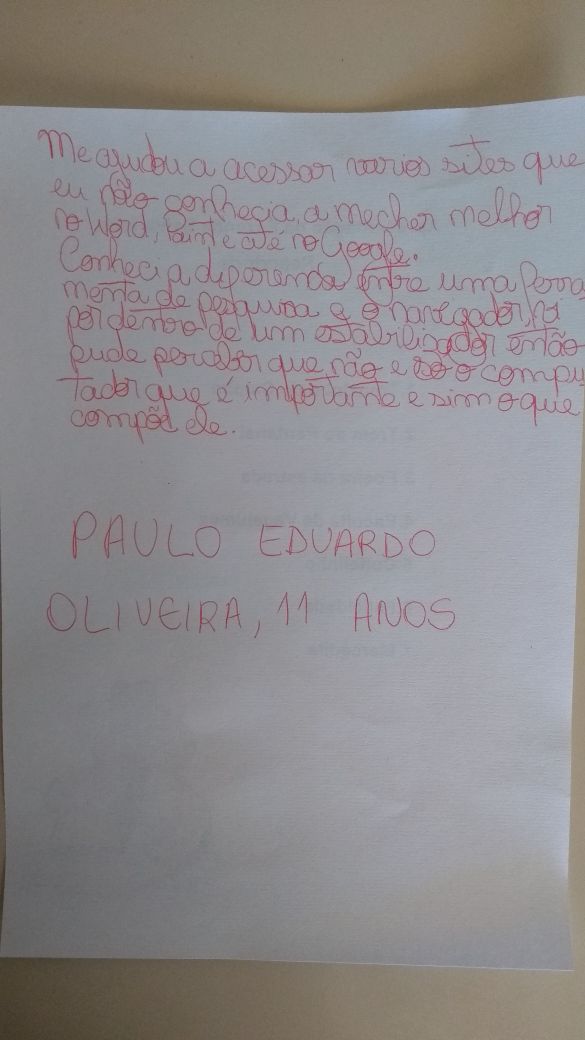 Me ajudou a acessar varios sites que
eu não conhecia, a mecher melhor
no Word, Paint e até no Google.
Conheci a diferenda entre uma ferra
menta de pesquisa e o navegador, fu
por dentro de um estabilizador então
pude perceber que não e so o compu
tador que é importante e sim o que
compõe ele.
PAULO EDUARDO
OLIVEIRA, 11 ANOS